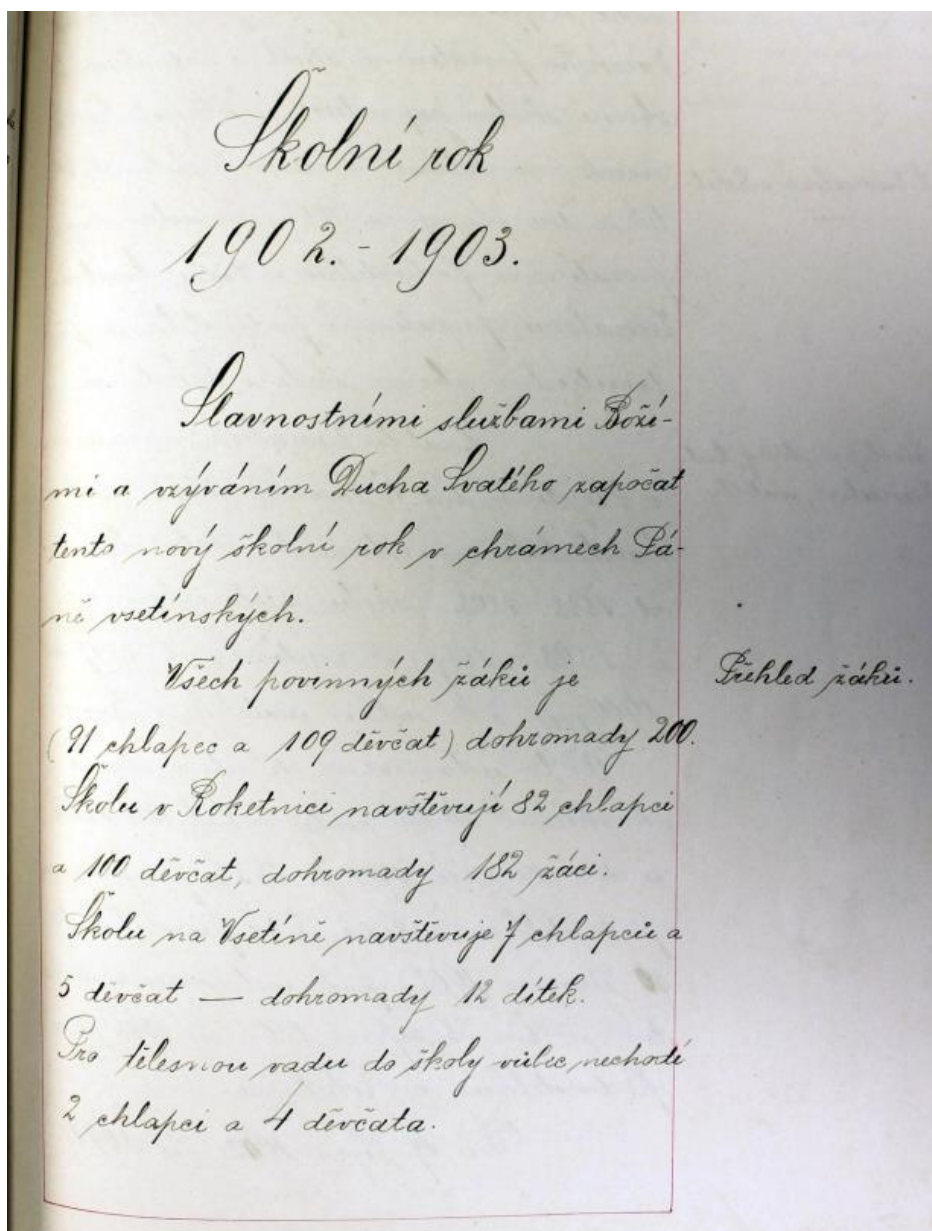 Školní rok
1902. - 1903.
Slavnostními službami Boží-
mi a vzýváním Ducha Svatého započat
tento nový školní rok v chrámech Pá-
ně vsetínských.
Všech povinných žáků je
Přehled žáků.
(91 chlapec a 109 děvčat) dohromady 200.
Školu v Roketnici navštěvují 82 chlapci
a 100 děvčat, dohromady 182 žáci.
Školu na Vsetíně navštěvuje 7 chlapců a
5 děvčat — dohromady 12 dítek.
Pro tělesnou vadu do školy vůbec nechodí
2 chlapci a 4 děvčata.